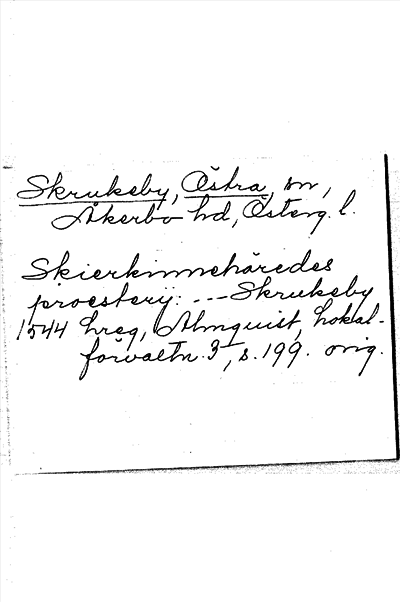 Skrukeby, Östra, sn,
Åkerbo hd, Österg. l.
Skierkinnehäredes
proesterij: --- Skrukeby
1544 hreg, Almquist, Lokal-
förvaltn. 3, s. 199. orig.